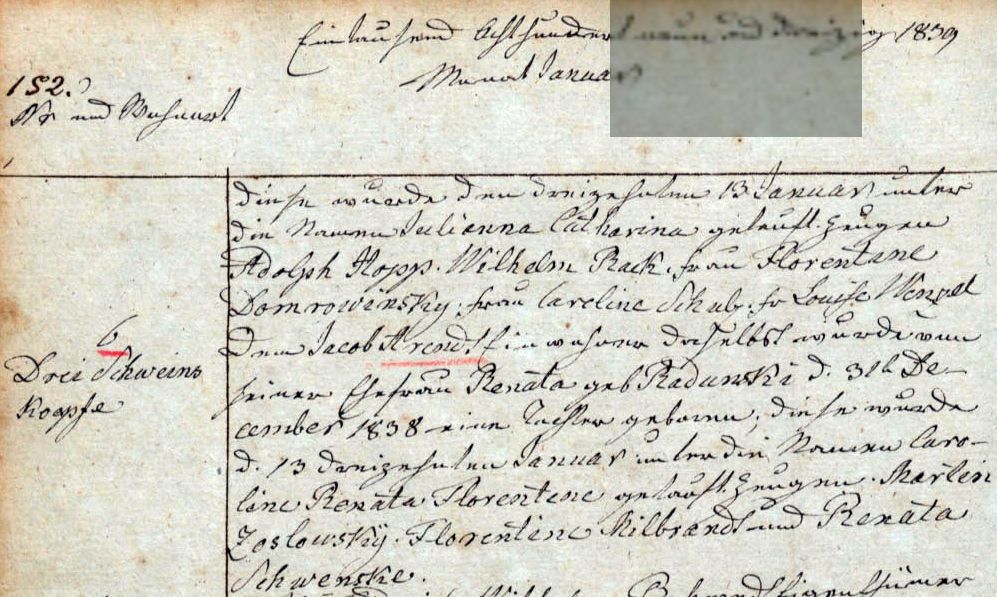 Eintausend Achthundert neun und dreizig 1839
Monat Januar
152.
Nr und Wohnort
diese wurde den dreizehnten 13 Januar unter
die Namen Julianna Catharina getauft. Zeugen
Adolph Hopp. Wilhelm Rack. frau Florentine
Domrowinsky. frau Careline Schulz. fr Louise Wenzel
6
Drei Schweins
Koepfe
Dem Jacob Arend. Einwohner daselbst wurde von
seiner Ehefrau Renata geb Radunski d. 31t De-
cember 1838 eine Tochter geboren, diese wurde
d. 13 dreizehnten Januar unter die Namen Caro-
line Renata Florentene getauft. Zeugen. Martin
Zoslowsky. Florentine Milbrandt und Renata
Schwenske.
Wilhelm Eigenthümer